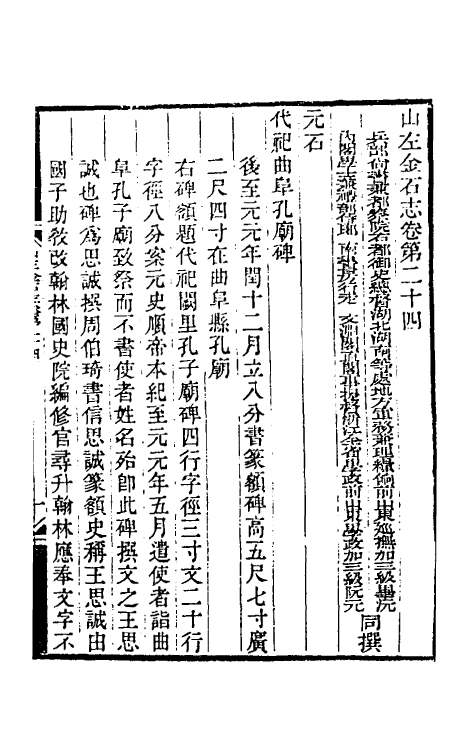 山左金石志卷第二十四
兵部尚書兼都察院右都御史總督湖北湖南等處地方軍務兼理糧餉前山東巡撫加三級畢沅
內閣學士兼禮部侍郎 南書房行走 文淵閣直閣事提督浙江全省學政前山東學政加三級阮元
同撰
元石
代祀曲阜孔廟碑
後至元元年閏十二月立八分書篆額碑高五尺七寸廣
二尺四寸在曲阜縣孔廟
右碑額題代祀闕里孔子廟碑四行字徑三寸文二十行
字徑八分案元史順帝本紀至元元年五月遣使者詣曲
阜孔子廟致祭而不書使者姓名殆卽此碑撰文之王思
誠也碑爲思誠撰周伯琦書信思誠篆額史稱王思誠由
國子助敎改翰林國史院編修官尋升翰林應奉文字不